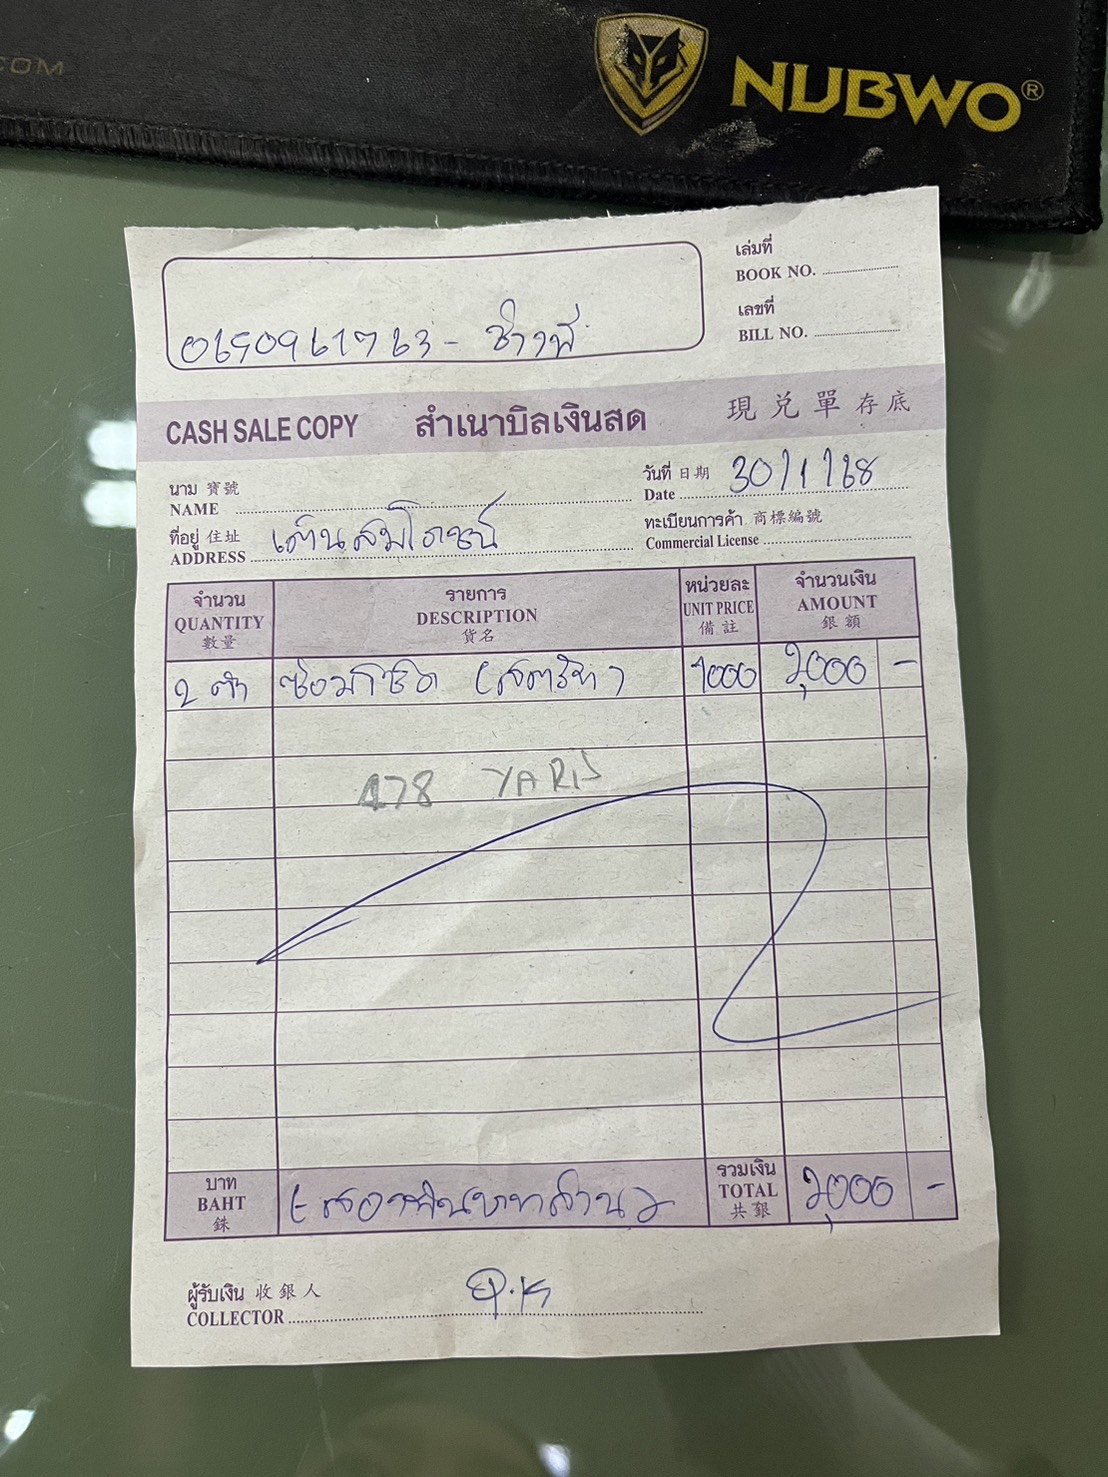 .COM
NUBWO®
เล่มที่
BOOK NO.
เลขที่
BILL NO.
0650961763 - ช่างพี
CASH SALE COPY สำเนาบิลเงินสด 現兌單存底
นาม 寶號
NAME
วันที่ 日期
Date 30/1/68
ที่อยู่ 住址
ADDRESS เต้นสมโภชน์
ทะเบียนการค้า 商標編號
Commercial License
จำนวน รายการ หน่วยละ จำนวนเงิน
QUANTITY DESCRIPTION UNIT PRICE AMOUNT
數量 貨名 備註 銀額
2 ตัว 1000 2,000 -
478 YARIS
บาท รวมเงิน
BAHT (สองพันบาทถ้วน) TOTAL 2,000 -
銖 共銀
ผู้รับเงิน 收銀人
COLLECTOR